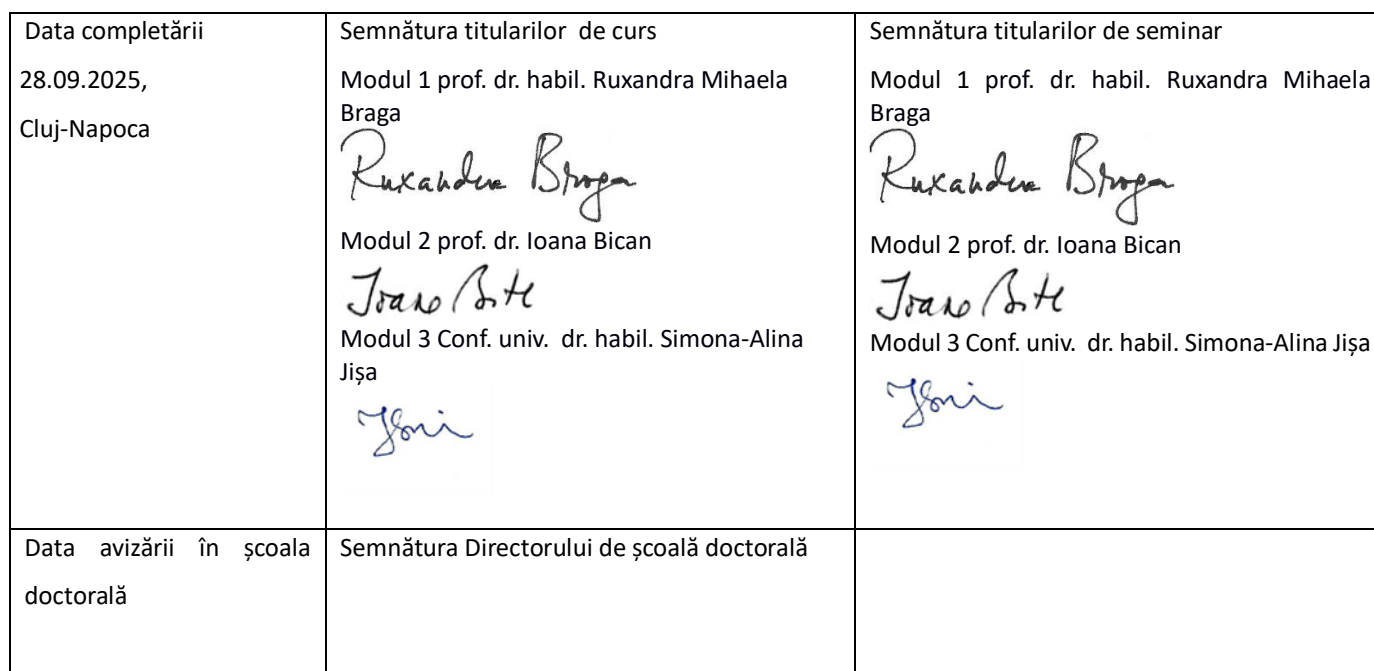 Data completării
28.09.2025,
Cluj-Napoca
Semnătura titularilor de curs
Modul 1 prof. dr. habil. Ruxandra Mihaela
Braga
Ruxandra Braga
Modul 2 prof. dr. Ioana Bican
Ioana
Modul 3 Conf. univ. dr. habil. Simona-Alina
Jișa
Semnătura titularilor de seminar
Modul 1 prof. dr. habil. Ruxandra Mihaela
Braga
Ruxandra Braga
Modul 2 prof. dr. Ioana Bican
Ioana
Modul 3 Conf. univ. dr. habil. Simona-Alina Jișa
Data avizării în școala
doctorală
Semnătura Directorului de școală doctorală